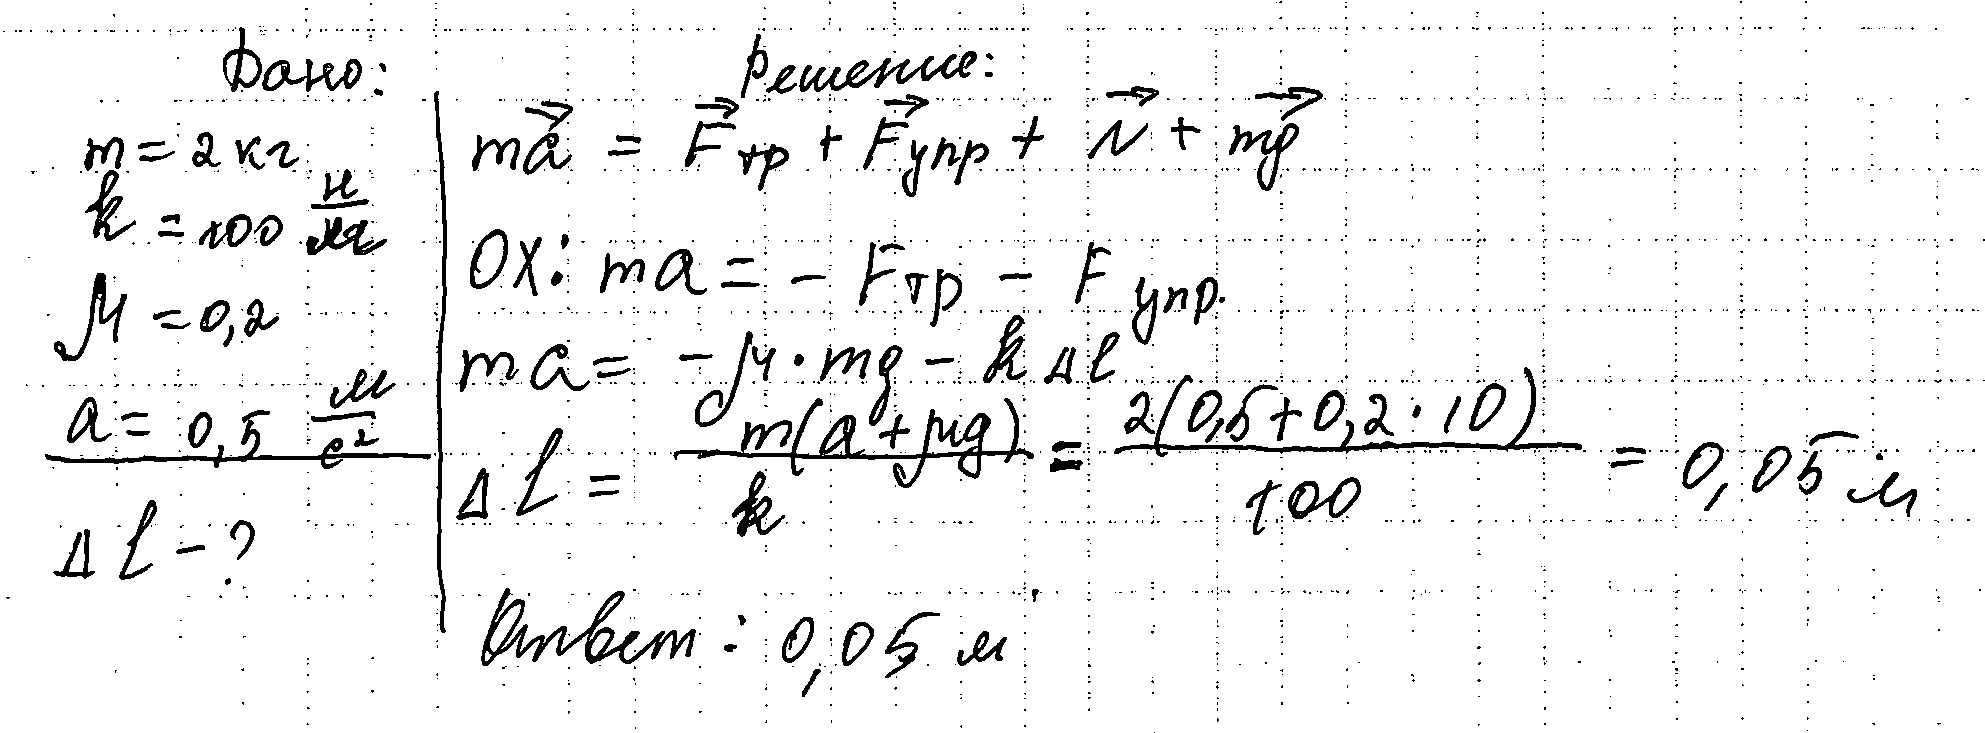 Дано:
m = 2 кг
k = 100 Н/м
μ = 0,2
a = 0,5 м/с²
Δl - ?
Решение:
ma⃗ = F⃗тр + F⃗упр + N⃗ + mg⃗
OX: ma = - Fтр - Fупр.
ma = - μ · mg - kΔl
Δl = m(a + μg)/k = 2(0,5 + 0,2 · 10)/100 = 0,05 м
Ответ: 0,05 м